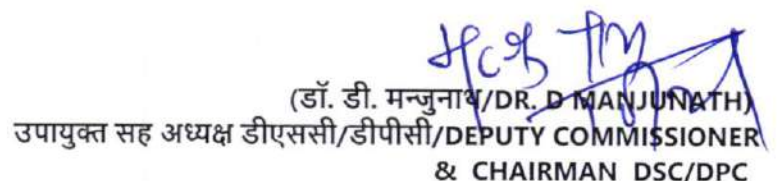 (डॉ. डी. मन्जुनाथ/DR. D MANJUNATH)
उपायुक्त सह अध्यक्ष डीएससी/डीपीसी/DEPUTY COMMISSIONER
& CHAIRMAN DSC/DPC